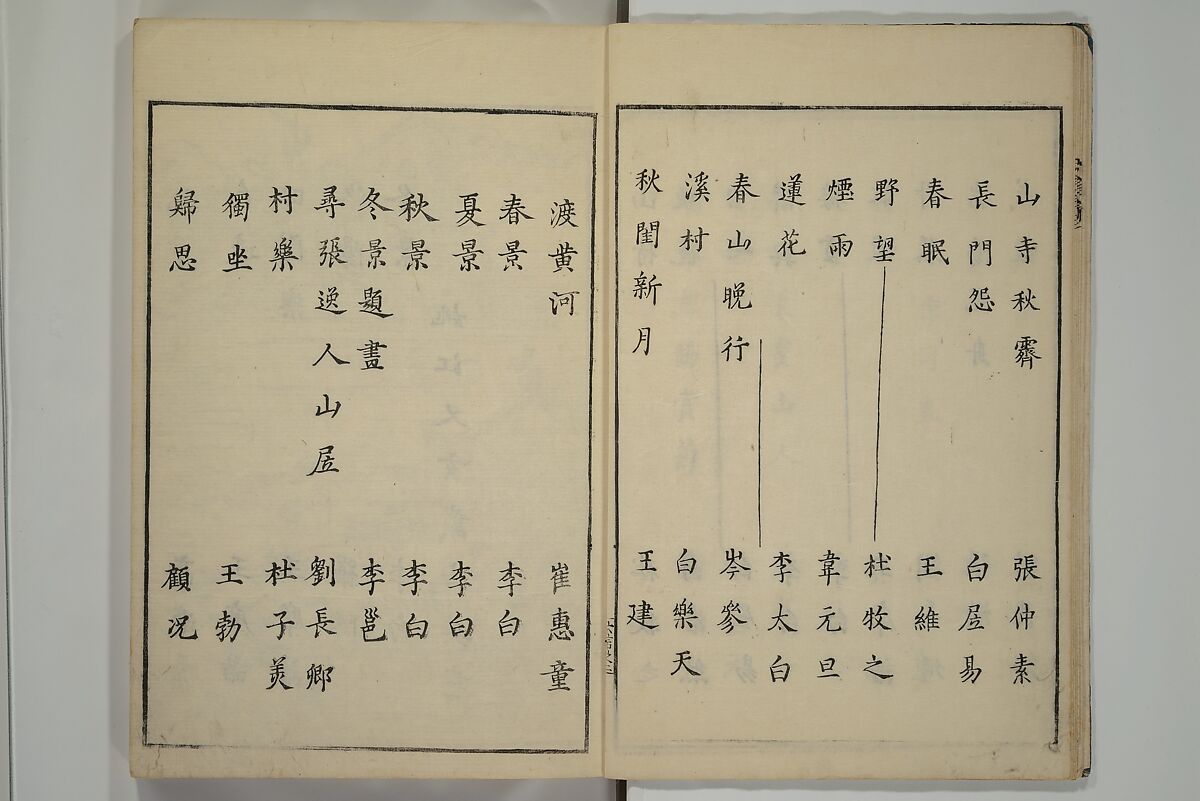 山寺秋霽 張仲素
長門怨 白居易
春眠 王維
野望 杜牧之
煙雨 韋元旦
蓮花 李太白
春山晚行 岑參
溪村 白樂天
秋閨新月 王建
渡黃河 崔惠童
春景 李白
夏景 李白
秋景 李白
冬景題畫 李邕
尋張逸人山居 劉長卿
村樂 杜子美
獨坐 王勃
歸思 顧况